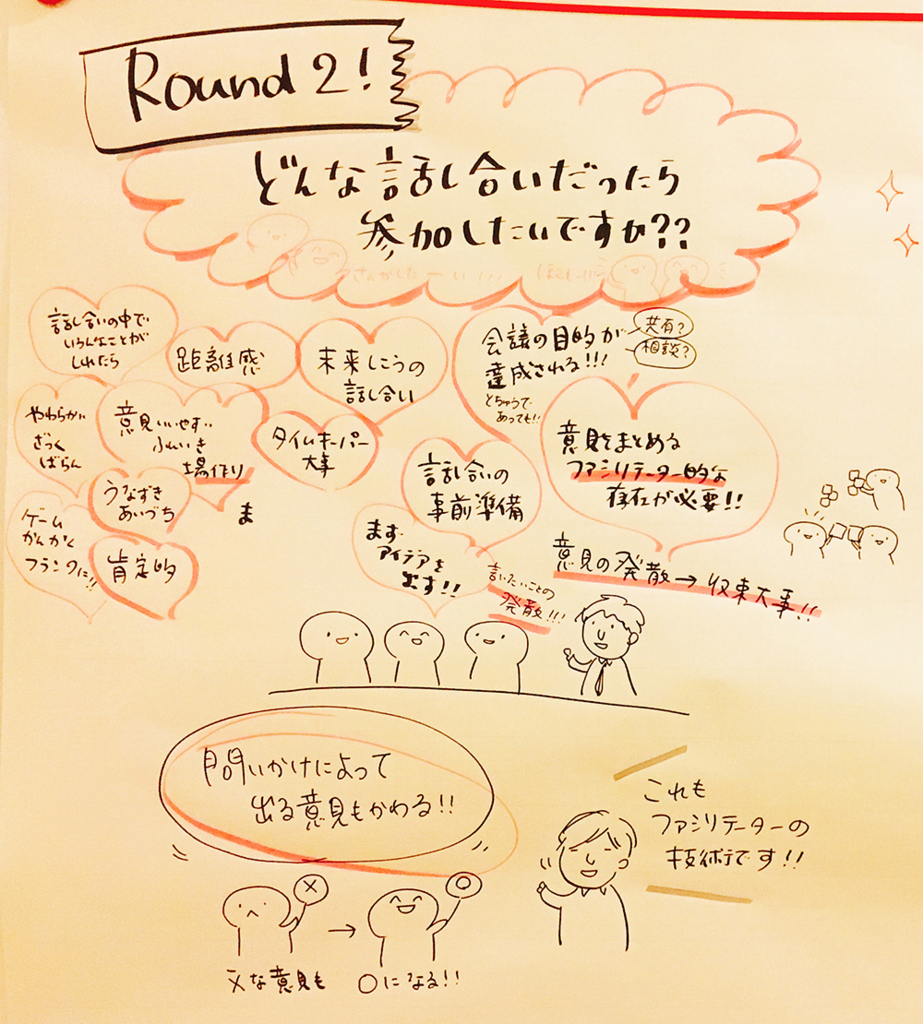 Round 2!
どんな話し合いだったら
参加したいですか??
さんかしたーい!!!
話し合いの中で
いろんなことが
しれたら
距離感
未来しこうの
話し合い
会議の目的が
達成される!!!
とちゅうで
あっても!!
共有?
相談?
やわらかい
ざっく
ばらん
意見いいやすい
ふんいき
場作り
タイムキーパー
大事
意見をまとめる
ファシリテーター的な
存在が必要!!
うなずき
あいづち
ま
話し合いの
事前準備
ゲーム
かんかく
フランクに!!
肯定的
まず
アイデアを
出す!!
言いたいことの
発散!!!
意見の発散→収束大事!!
問いかけによって
出る意見もかわる!!
これも
ファシリテーターの
技術です!!
×
○
→
×な意見も
○になる!!